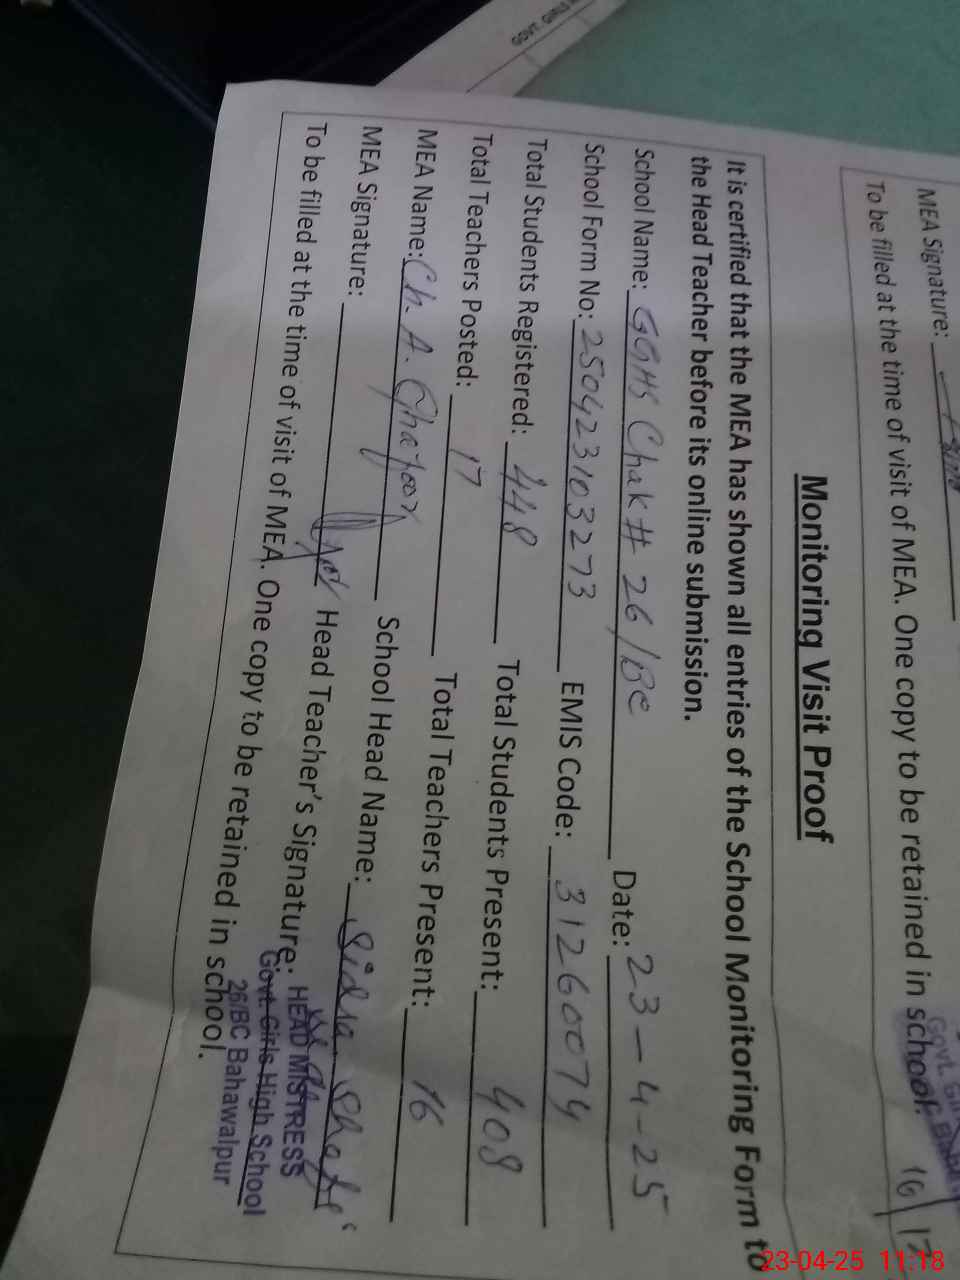 GOVT. GIRLS
MEA Signature:
To be filled at the time of visit of MEA. One copy to be retained in school.
16 17
Monitoring Visit Proof
It is certified that the MEA has shown all entries of the School Monitoring Form to
the Head Teacher before its online submission.
School Name: GGHS Chak # 26/BC Date: 23-4-25
School Form No: 25042310 3273 EMIS Code: 31260074
Total Students Registered: 448 Total Students Present: 408
Total Teachers Posted: 17 Total Teachers Present: 16
MEA Name: Ch. A. Ghafoor School Head Name: Sidra Shafi
MEA Signature: Head Teacher's Signature:
HEAD MISTRESS
Govt. Girls High School
26/BC Bahawalpur
To be filled at the time of visit of MEA. One copy to be retained in school.
23-04-25 11:18